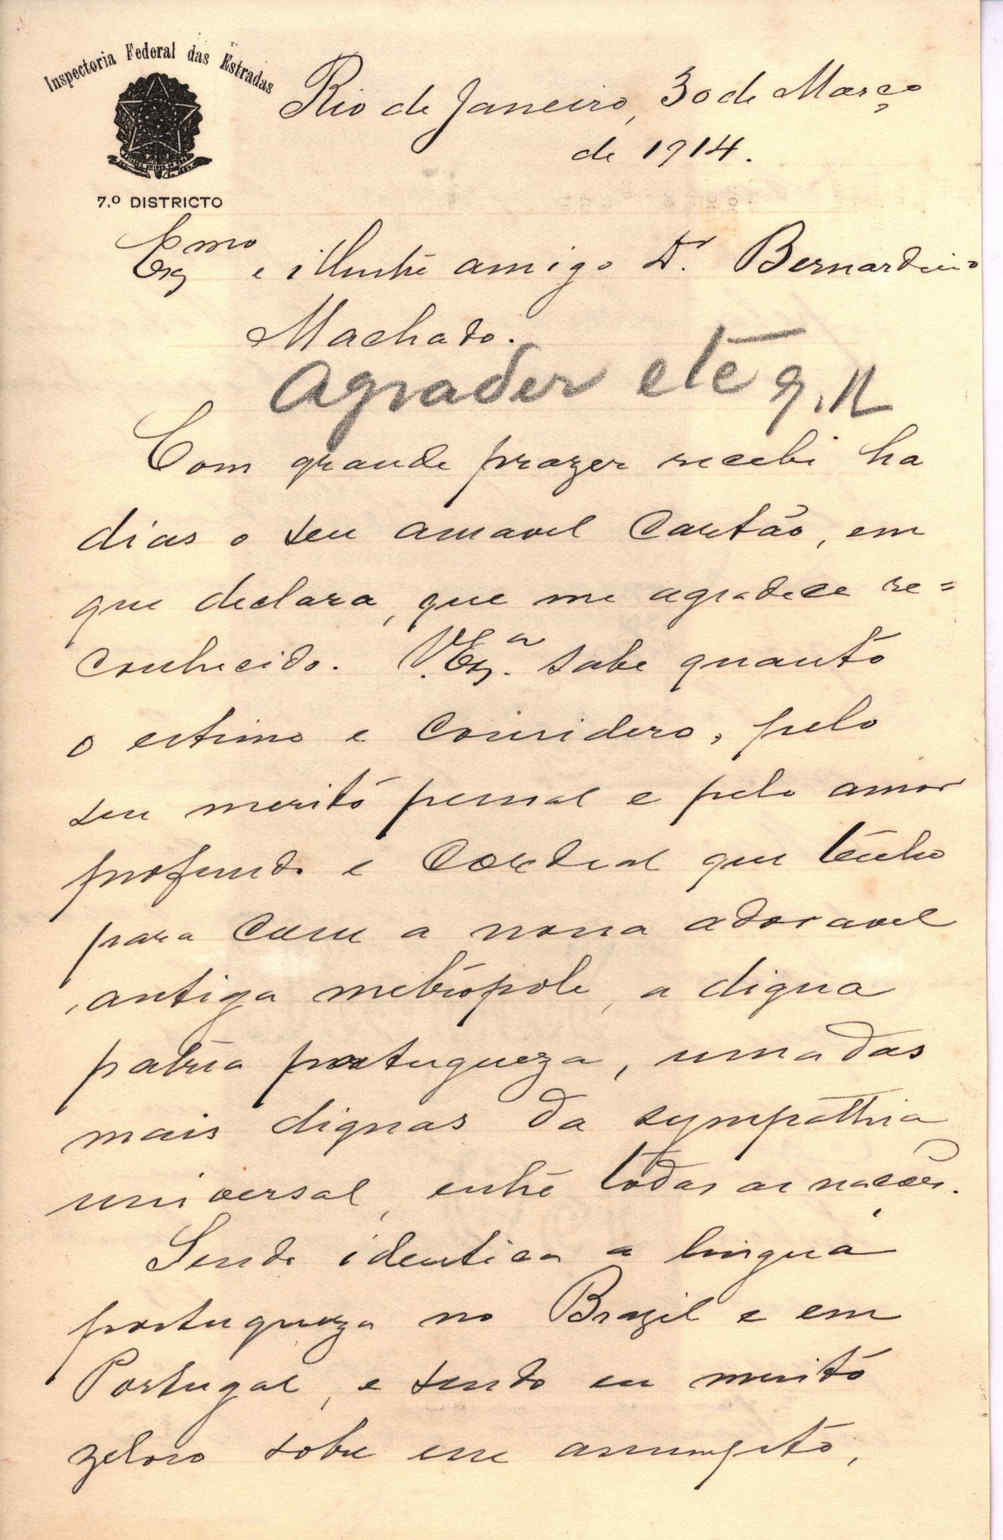 Inspectoria Federal das Estradas
7.º DISTRICTO
Rio de Janeiro, 30 de Março
de 1914.
Exmo e illustre amigo Dr. Bernardino
Machado.
Agradecer
Com grande prazer recebi ha
dias o seu amavel cartão, em
que declara, que me agradece re=
conhecido. V. Exa. sabe quanto
o estimo e considero, pelo
seu merito pessoal e pelo amor
profundo e cordial que tenho
para com a nossa adoravel
antiga metrópole, a digna
patria portugueza, uma das
mais dignas da sympathia
universal, entre todas as nações.
Sendo identica a lingua
portugueza no Brazil e em
Portugal, e sendo eu muito
zeloso sobre esse assumpto,